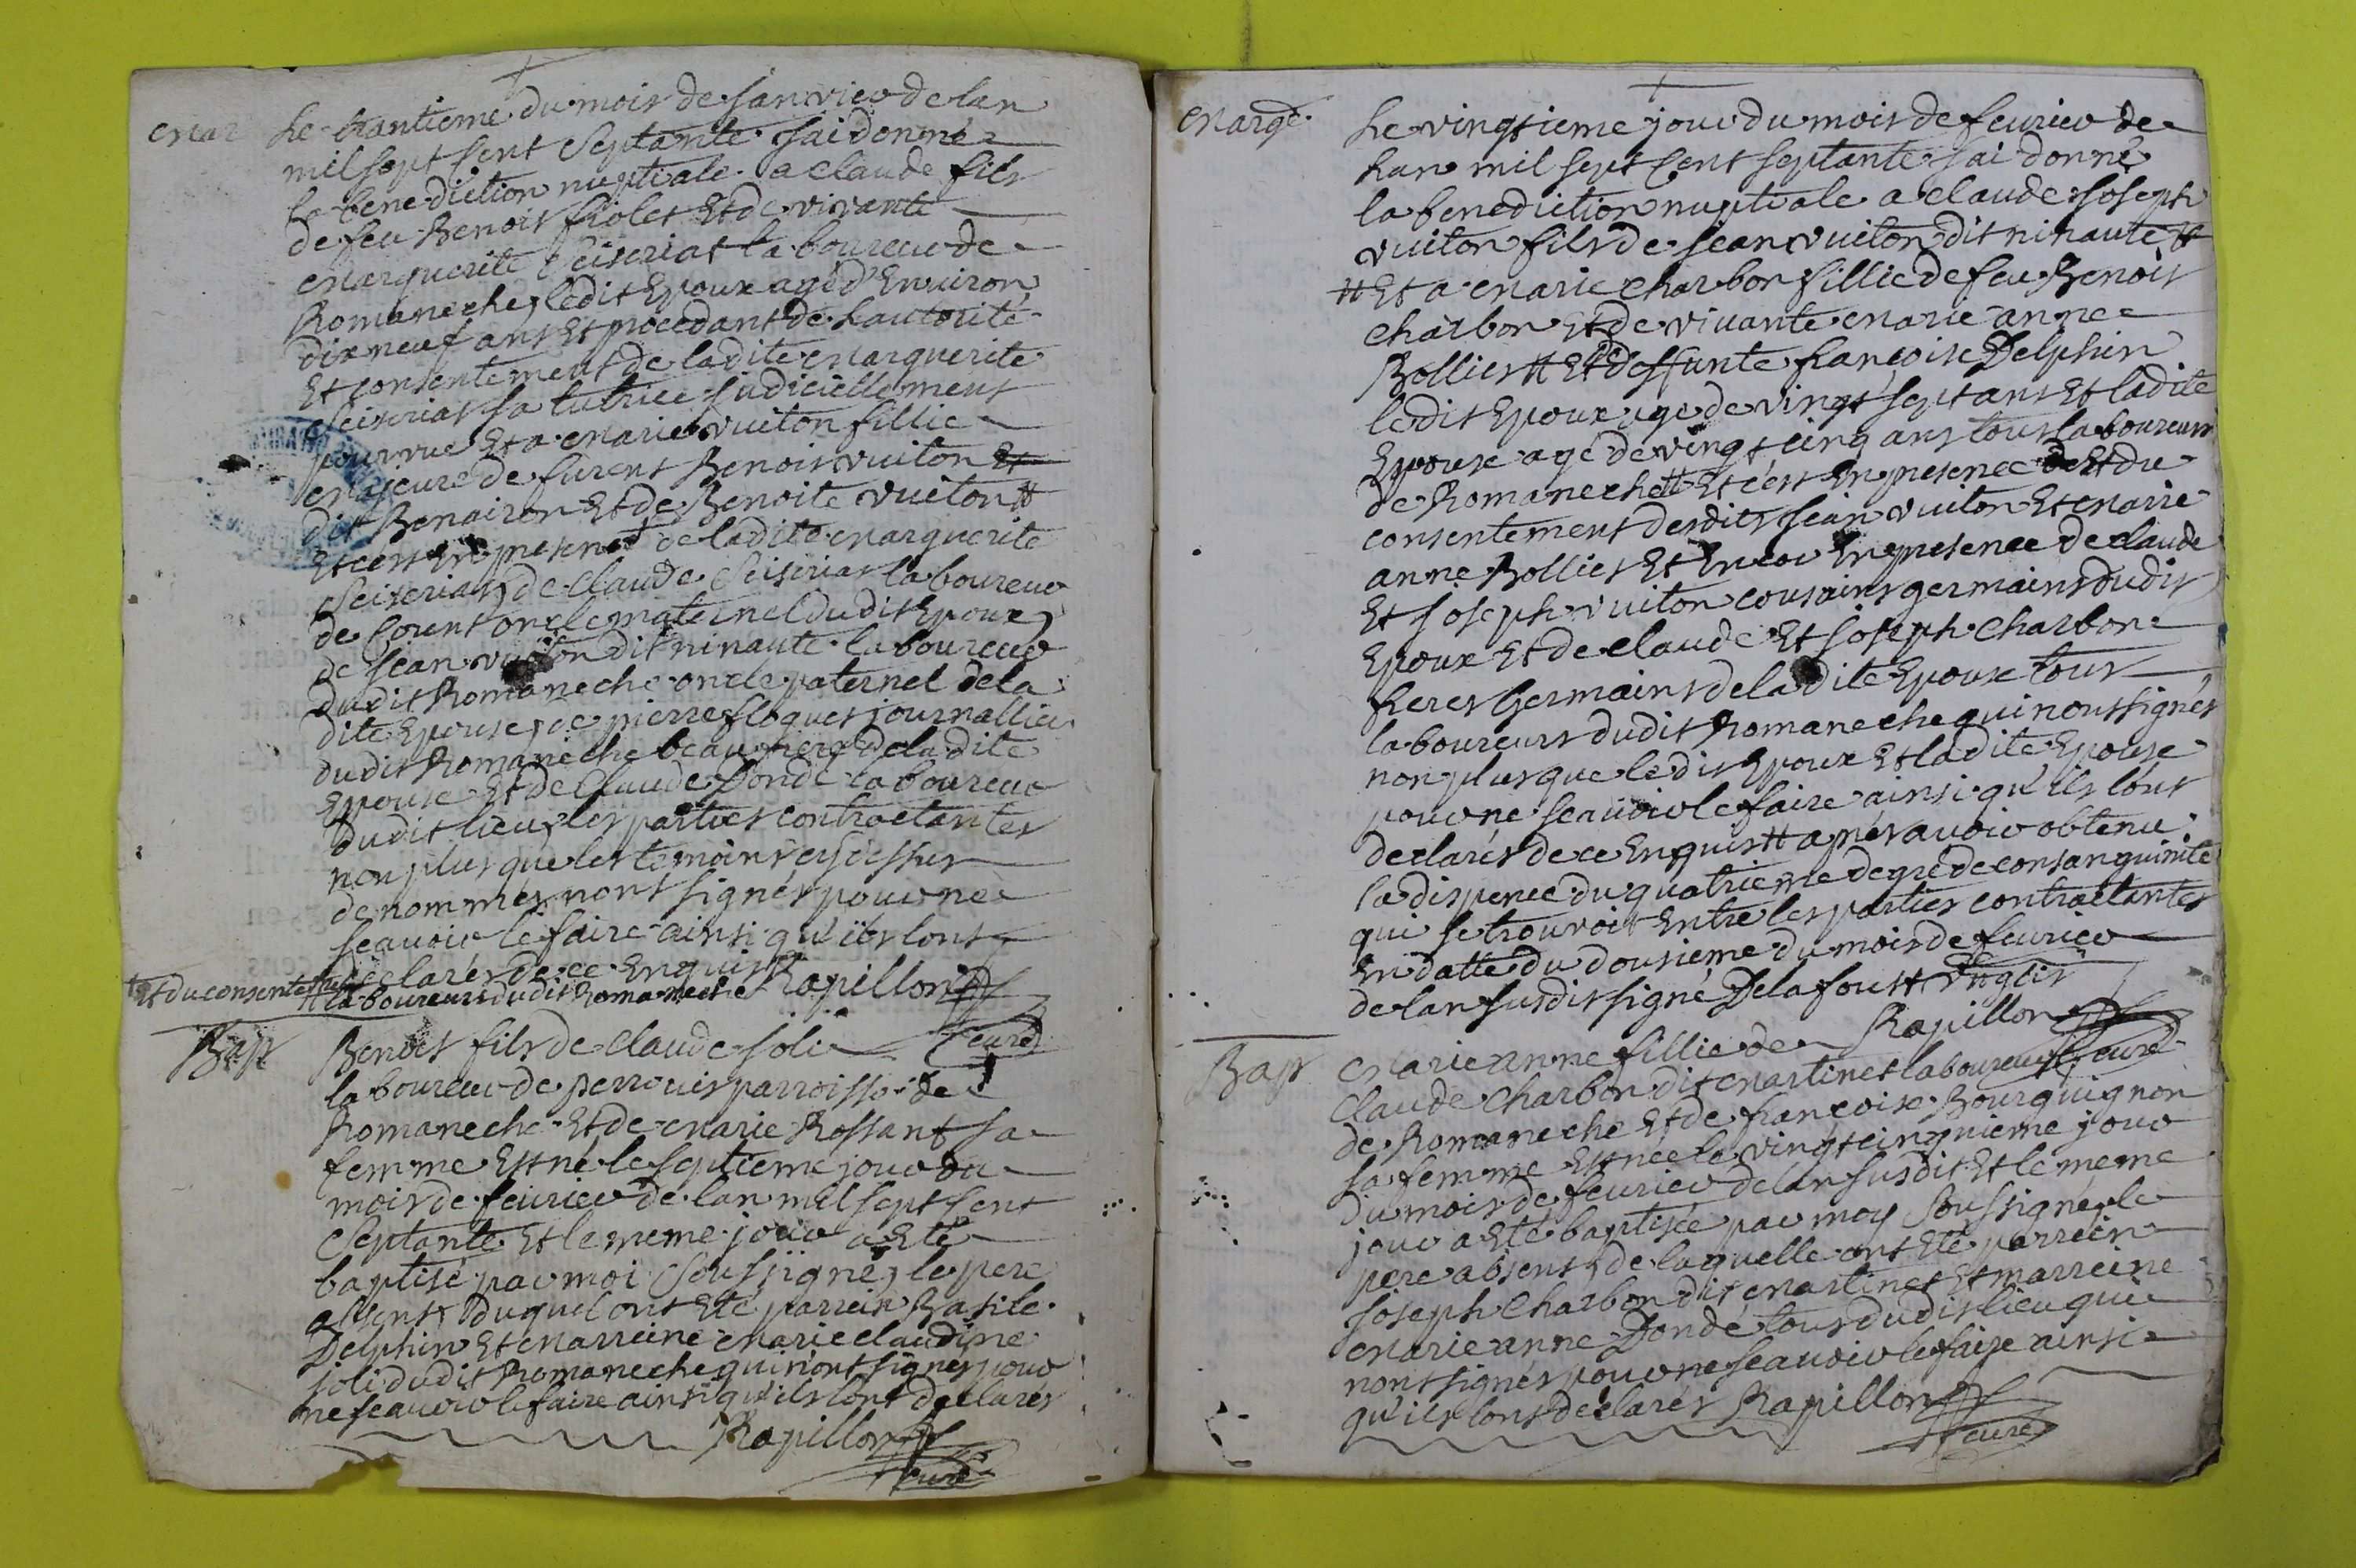 Mar
Le trantieme du mois de janvier de lan
mil sept cent septante jai donné
la benediction nuptiale a claude fils
de feu Benoit fiolet Et de vivante
Marguerite Seiseriat laboureur de
Romaneche, ledit Epoux agé d'Environ
dix neuf ans Et procedant de lautorité
Et consentement de ladite Marguerite
Seiseriat sa tutrice judiciellement
pourvue Et a Marie vuiton fillie
Majeure de furent Benoit vuiton Et
dit Benairon Et de Benoite vuiton #
Et cest En presence † de ladite Marguerite
Seiseriat, de claude Seiseriat laboureur
de Count oncle maternel dudit Epoux,
de jean vuiton dit ninante laboureur
dudit Romaneche oncle paternel de la
dite Epouse, de pierre floquet journallier
dudit Romaneche beau frere de la dite
Epouse Et de Claude Dondé laboureur
dudit lieu, les parties contractantes
non plus que les temoins cy dessus
denommés nont signés pour ne
scavoir le faire ainsi qu'ils lont
declarés de ce Enquis Rapillon
† Et du consentement
# laboureurs dudit Romaneche
curé
Bap
Benoit fils de claude joli
laboureur de perrouis parroisse de
Romaneche Et de Marie Rossant sa
femme Est né le septieme jour du
mois de fevrier de lan mil sept cent
Septante Et le meme jour a Eté
baptisé par moi Soussigné, le pere
absent, duquel ont Eté parrein Basile
Delphin Et Marreine Marie claudine
joli dudit Romaneche qui n'ont signés pour
ne scavoir le faire ainsi qu'ils lont declarés
Rapillon
curé
Marge.
Le vingtieme jour du mois de fevrier de
lan mil sept cent septante jai donné
la benediction nuptiale a claude joseph
vuiton fils de jean vuiton dit ninante #
# Et a Marie charbon fillie de feu Benoit
charbon Et de vivante Marie anne
Bollier # Et de deffunte francoise Delphin
ledit Epoux agé de vingt sept ans Et ladite
Epouse agé de vingt cinq ans tous laboureurs
de Romaneche # Et c'est En presence Et du
consentement desdits jean vuiton Et Marie
anne Bollier Et Encor En presence de claude
Et joseph vuiton cousains germains dudit
Epoux Et de claude Et joseph charbon
freres Germains de la dite Epouse tous
laboureurs dudit Romaneche qui nont signés
non plus que ledit Epoux Et ladite Epouse
pour ne scavoir le faire ainsi qu'ils lont
declarés de ce Enquis # apres avoir obtenu
la dispence du quatrieme degré de consanguinité
qui se trouvoit Entre les parties contractantes
En datte du dousieme du mois de fevrier
de lan susdit signé De la fou #
Rapillon
curé
Bap
Marie anne fillie de
Claude Charbon dit Martinet laboureur
de Romaneche Et de francoise Bourguignon
sa femme Est née le vingt cinquieme jour
du mois de fevrier de lan susdit Et le meme
jour a Eté baptisée par moy Soussigné, le
pere absent, de laquelle ont Eté parrein
joseph Charbon dit Martinet Et marreine
Marie anne Dondé tous dudit lieu qui
nont signés pour ne scavoir le faire ainsi
qu'ils lont declarés Rapillon
curé